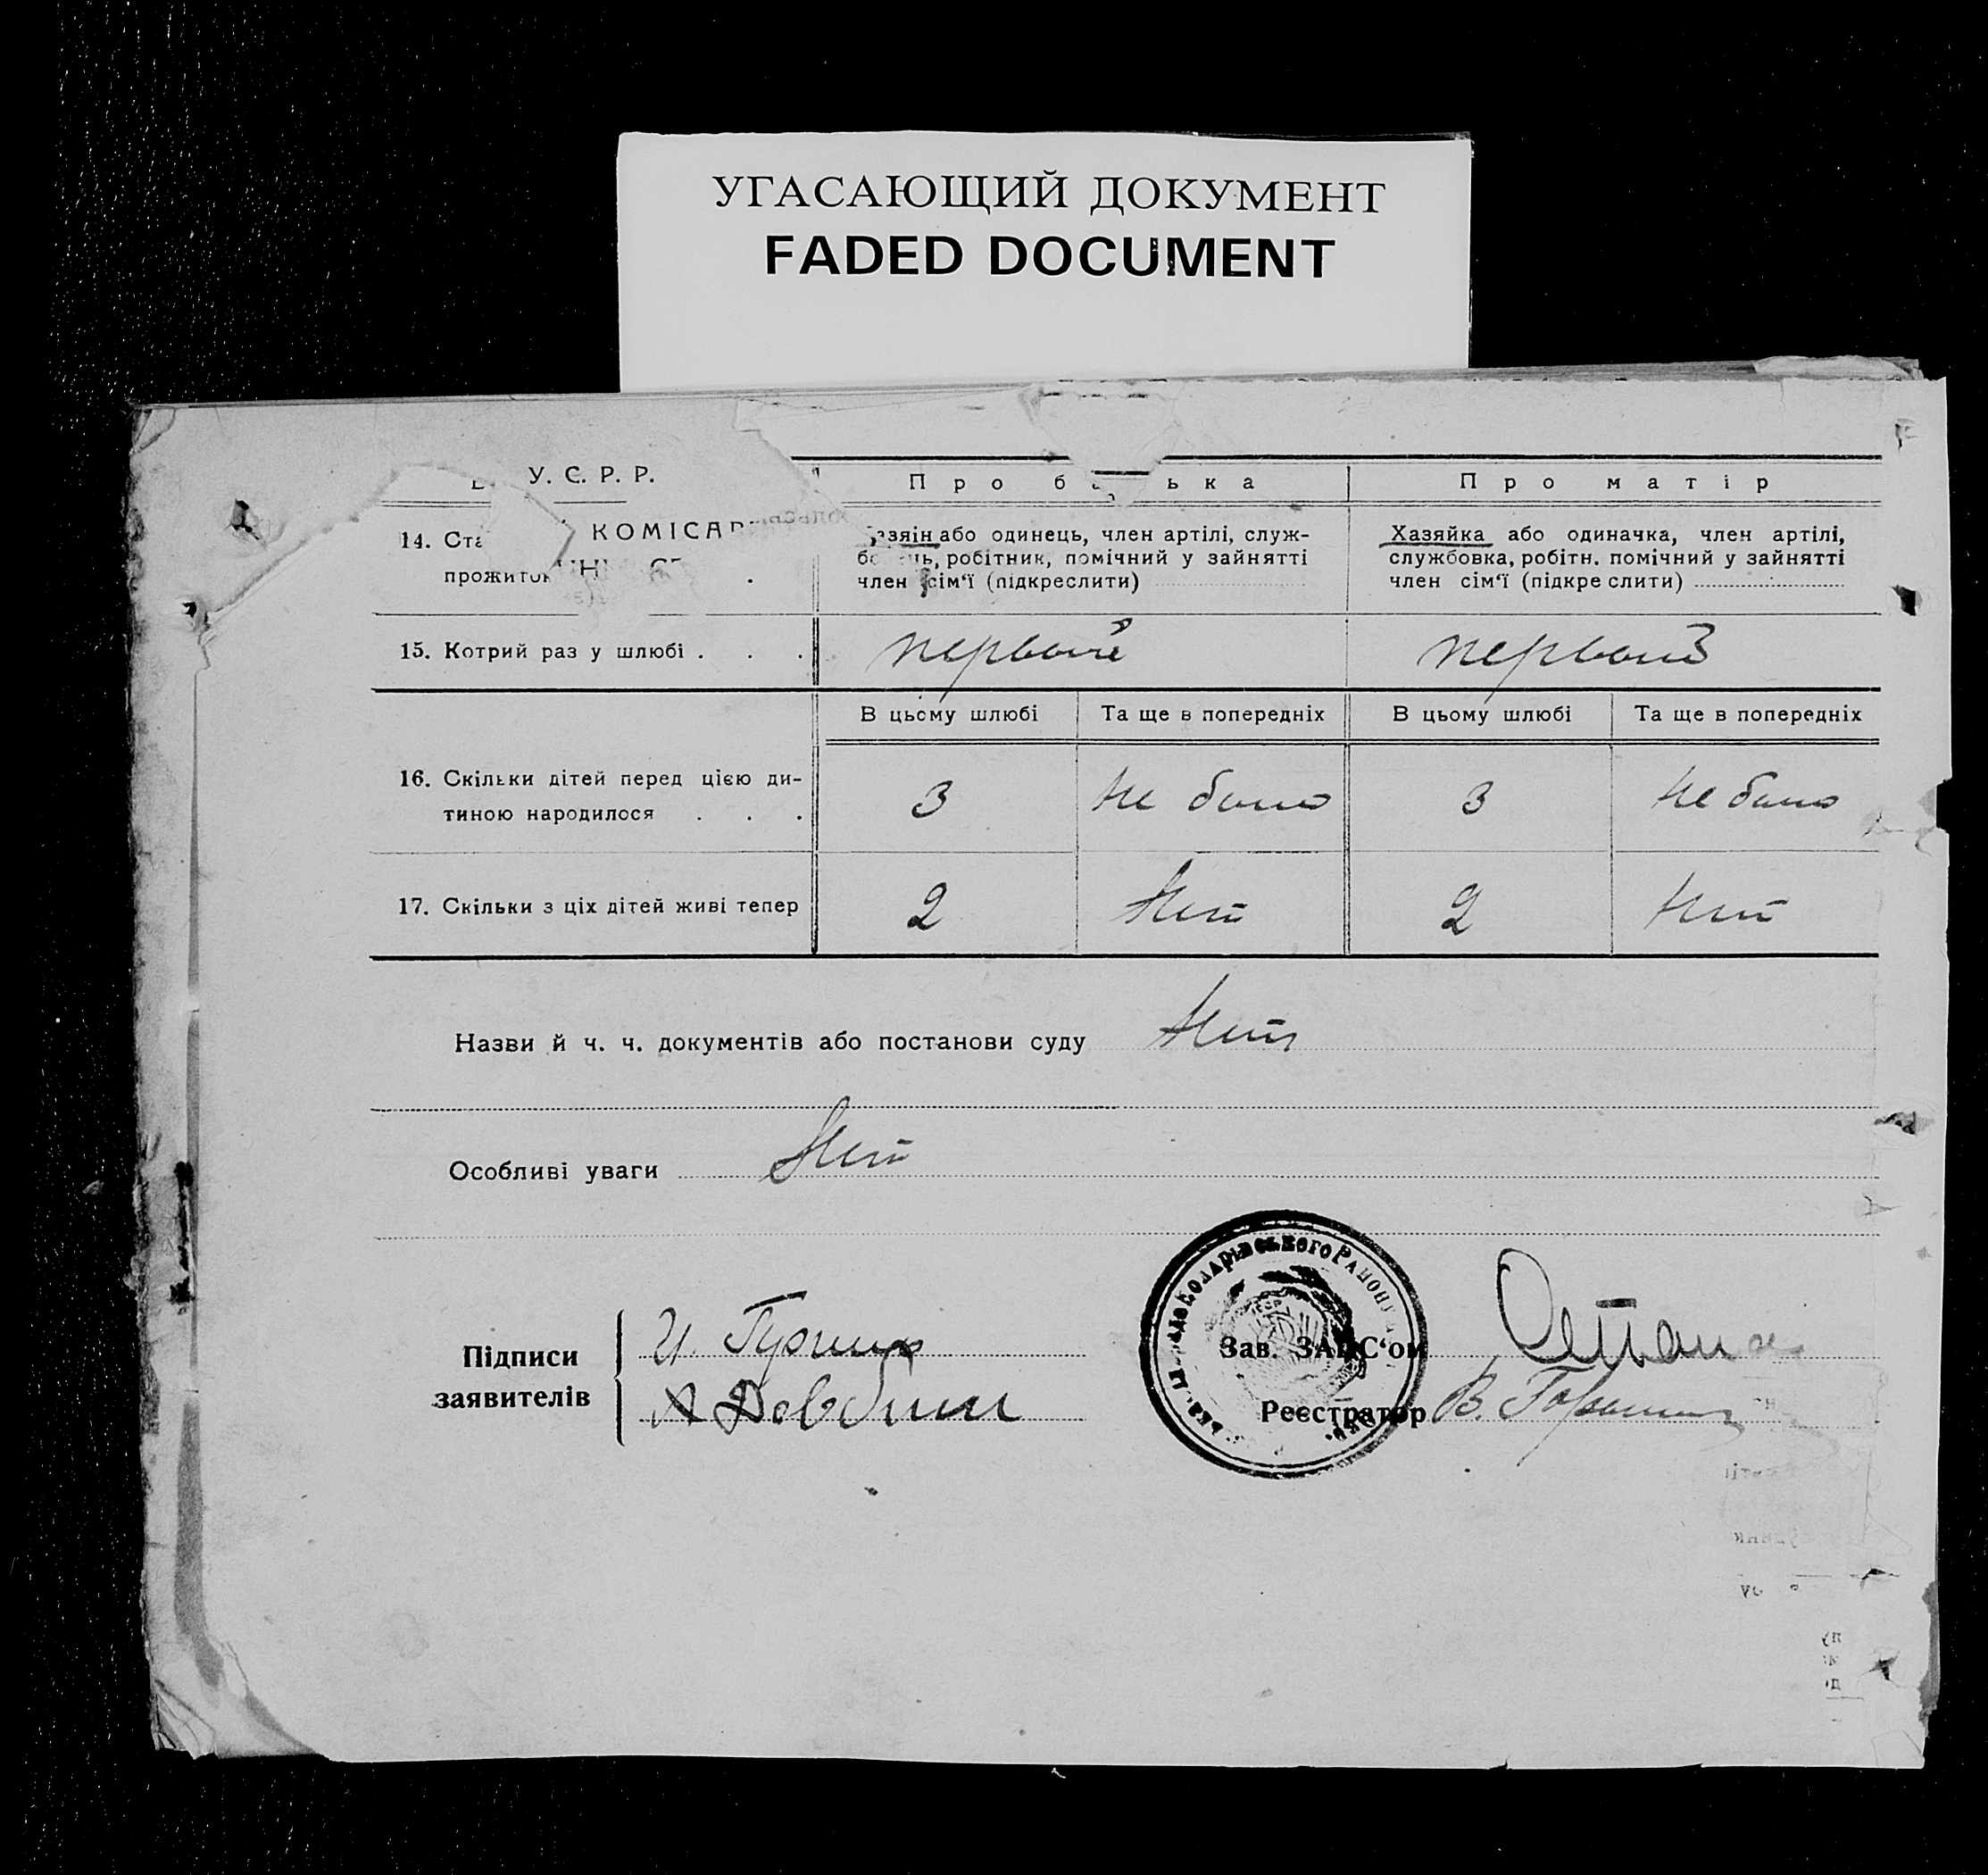 УГАСАЮЩИЙ ДОКУМЕНТ
FADED DOCUMENT
У. С. Р. Р.
Про б ька
Про матір
КОМІСАР
14. Ста
прожиток
зяїн або одинець, член артілі, служ-
бо ць, робітник, помічний у зайнятті
член сім'ї (підкреслити)
Хазяйка або одиначка, член артілі,
службовка, робітн. помічний у зайнятті
член сім'ї (підкреслити)
15. Котрий раз у шлюбі . . . первый первый
В цьому шлюбі Та ще в попередніх В цьому шлюбі Та ще в попередніх
16. Скільки дітей перед цією ди-
тиною народилося . . . 3 не было 3 не было
17. Скільки з ціх дітей живі тепер 2 Нет 2 Нет
Назви й ч. ч. документів або постанови суду Нет
Особливі уваги Нет
Підписи
заявителів
И.
А
Зав. ЗАГС'ом
Реєстратор В.